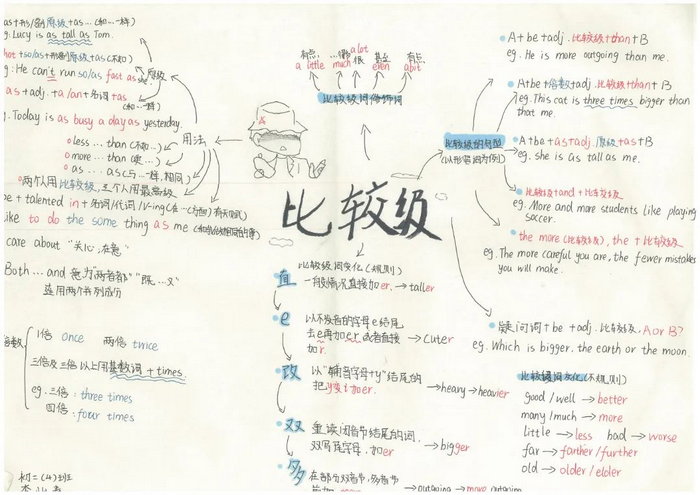 as+形/副原级+as…(和…一样)
Lucy is as tall as Tom.
not+so/as+形/副原级+as(不如)
eg: He can't run so/as fast as
原级
as+adj.+a/an+名词+as
(和…一样)
Today is as busy a day as yesterday
less … than (不如…)
more … than (更…)
as … as(与…一样,相同)
两个人用比较级,三个人用最高级
be + talented in + 名词/代词/v-ing(在…方面)有天赋
like to do the same thing as me
care about "关心,在意"
Both … and 意为"两者都" "既…又"
连用两个并列成分
倍数
1倍 once 两倍 twice
三倍及三倍以上用基数词 + times
eg. 三倍: three times
四倍: four times
初二(4)班
用法
有点 …得多 a lot 甚至 有点
a little much 很 even a bit
比较级词修饰词
比较级
比较级词变化(规则)
直 一般情况直接加er. → taller
e 以不发音的字母e结尾
去e再加er或者直接
加r. → cuter
改 以"辅音字母+y"结尾的
把y变i加er. → heavy → heavier
双 重读闭音节结尾的词,
双写尾字母,加er → bigger
多 在部分双音节,多音节
前加 → outgoing → more outgoing
比较级的句型
(以形容词为例)
A + be + adj. 比较级+than + B
eg. He is more outgoing than me.
A+be+倍数+adj.比较级+than+B
eg. This cat is three times bigger than
that me.
A+be+as+adj.原级+as+B
eg. she is as tall as me.
比较级+and+比较级
eg. More and more students like playing
soccer.
the more (比较级), the + 比较级
eg. The more careful you are, the fewer mistakes
you will make.
疑问词+be+adj.比较级, A or B?
eg. Which is bigger, the earth or the moon.
比较级词变化(不规则)
good / well → better
many / much → more
little → less bad → worse
far → farther / further
old → older / elder